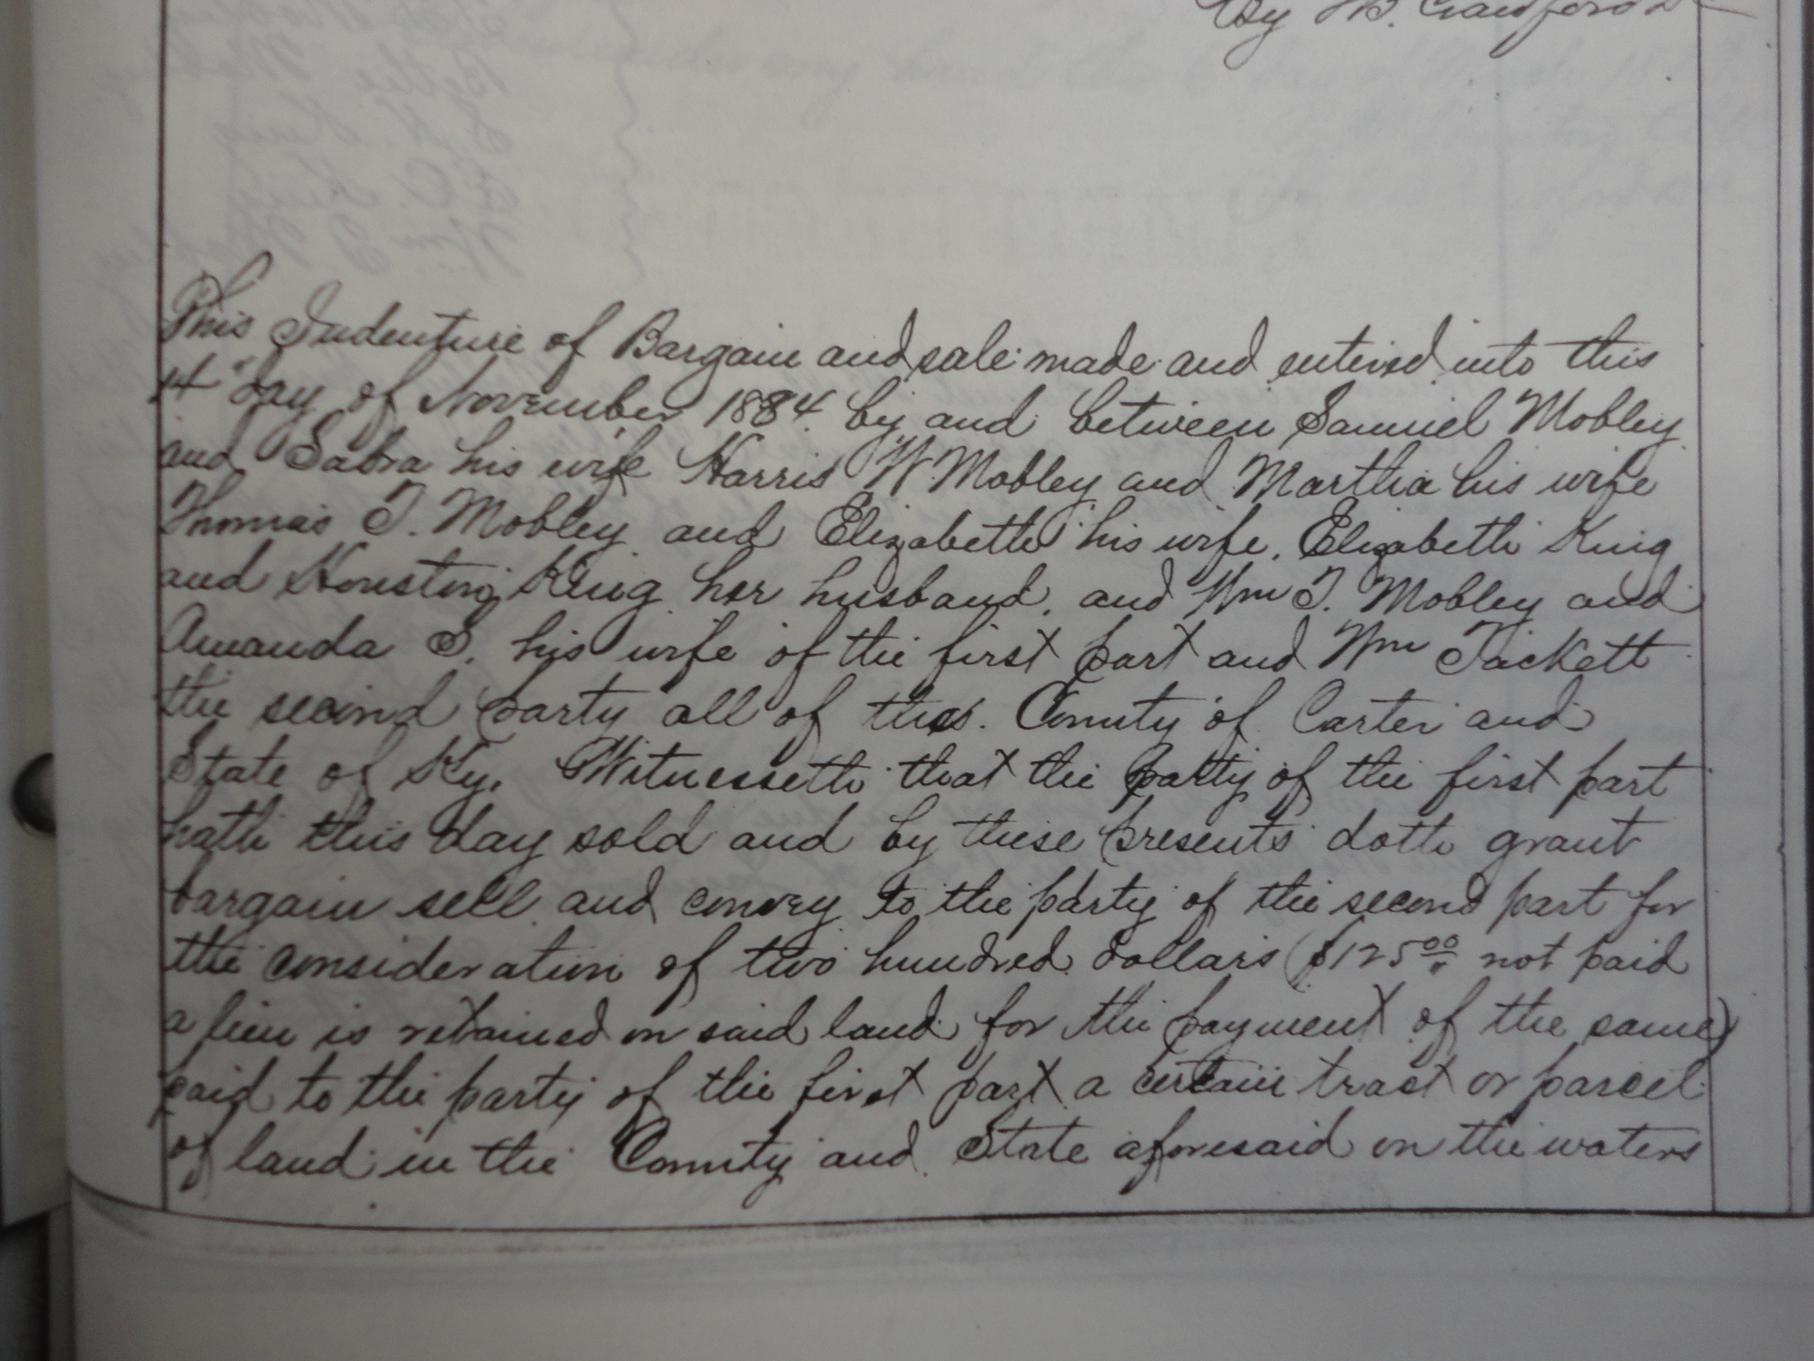 By W. B. Crawford D C
This Indenture of Bargain and sale made and entered into this
14" day of November 1884 by and between Samuel Mobley
and Sabra his wife Harris W. Mobley and Martha his wife
Thomas T. Mobley and Elizabeth his wife, Elizabeth King
and Houston King her husband, and Wm T. Mobley and
Amanda S. his wife of the first part and Wm Tackett
the second party all of the County of Carter and
State of Ky. Witnesseth that the party of the first part
hath this day sold and by these presents doth grant
bargain sell and convey to the party of the second part for
the consideration of two hundred dollars ($125.00 not paid
a lien is retained on said land for the payment of the same)
paid to the party of the first part a certain tract or parcel
of land in the County and State aforesaid on the waters